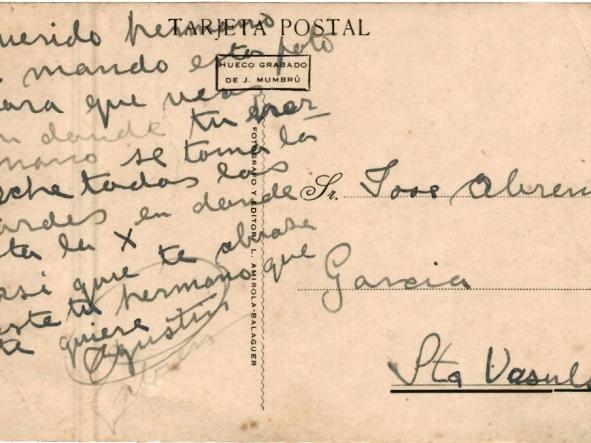 TARJETA POSTAL
HUECO GRABADO
DE J. MUMBRÚ
FOTOGRAFO Y EDITOR: L. AMIROLA-BALAGUER
uerido hermano
mando esta foto
ara que veas
n dande tu her-
mano se toma la
eche todas las
ardes en dande
ta la X
asi que te abrasa
este tu hermano que
te quiere
Agustin
Sr. Jose
Garcia
Sta